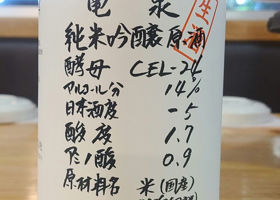 亀泉
生
純米吟醸原酒
酵母 CEL-24
アルコール分 14%
日本酒度 -5
酸度 1.7
アミノ酸 0.9
原材料名 米(国産)